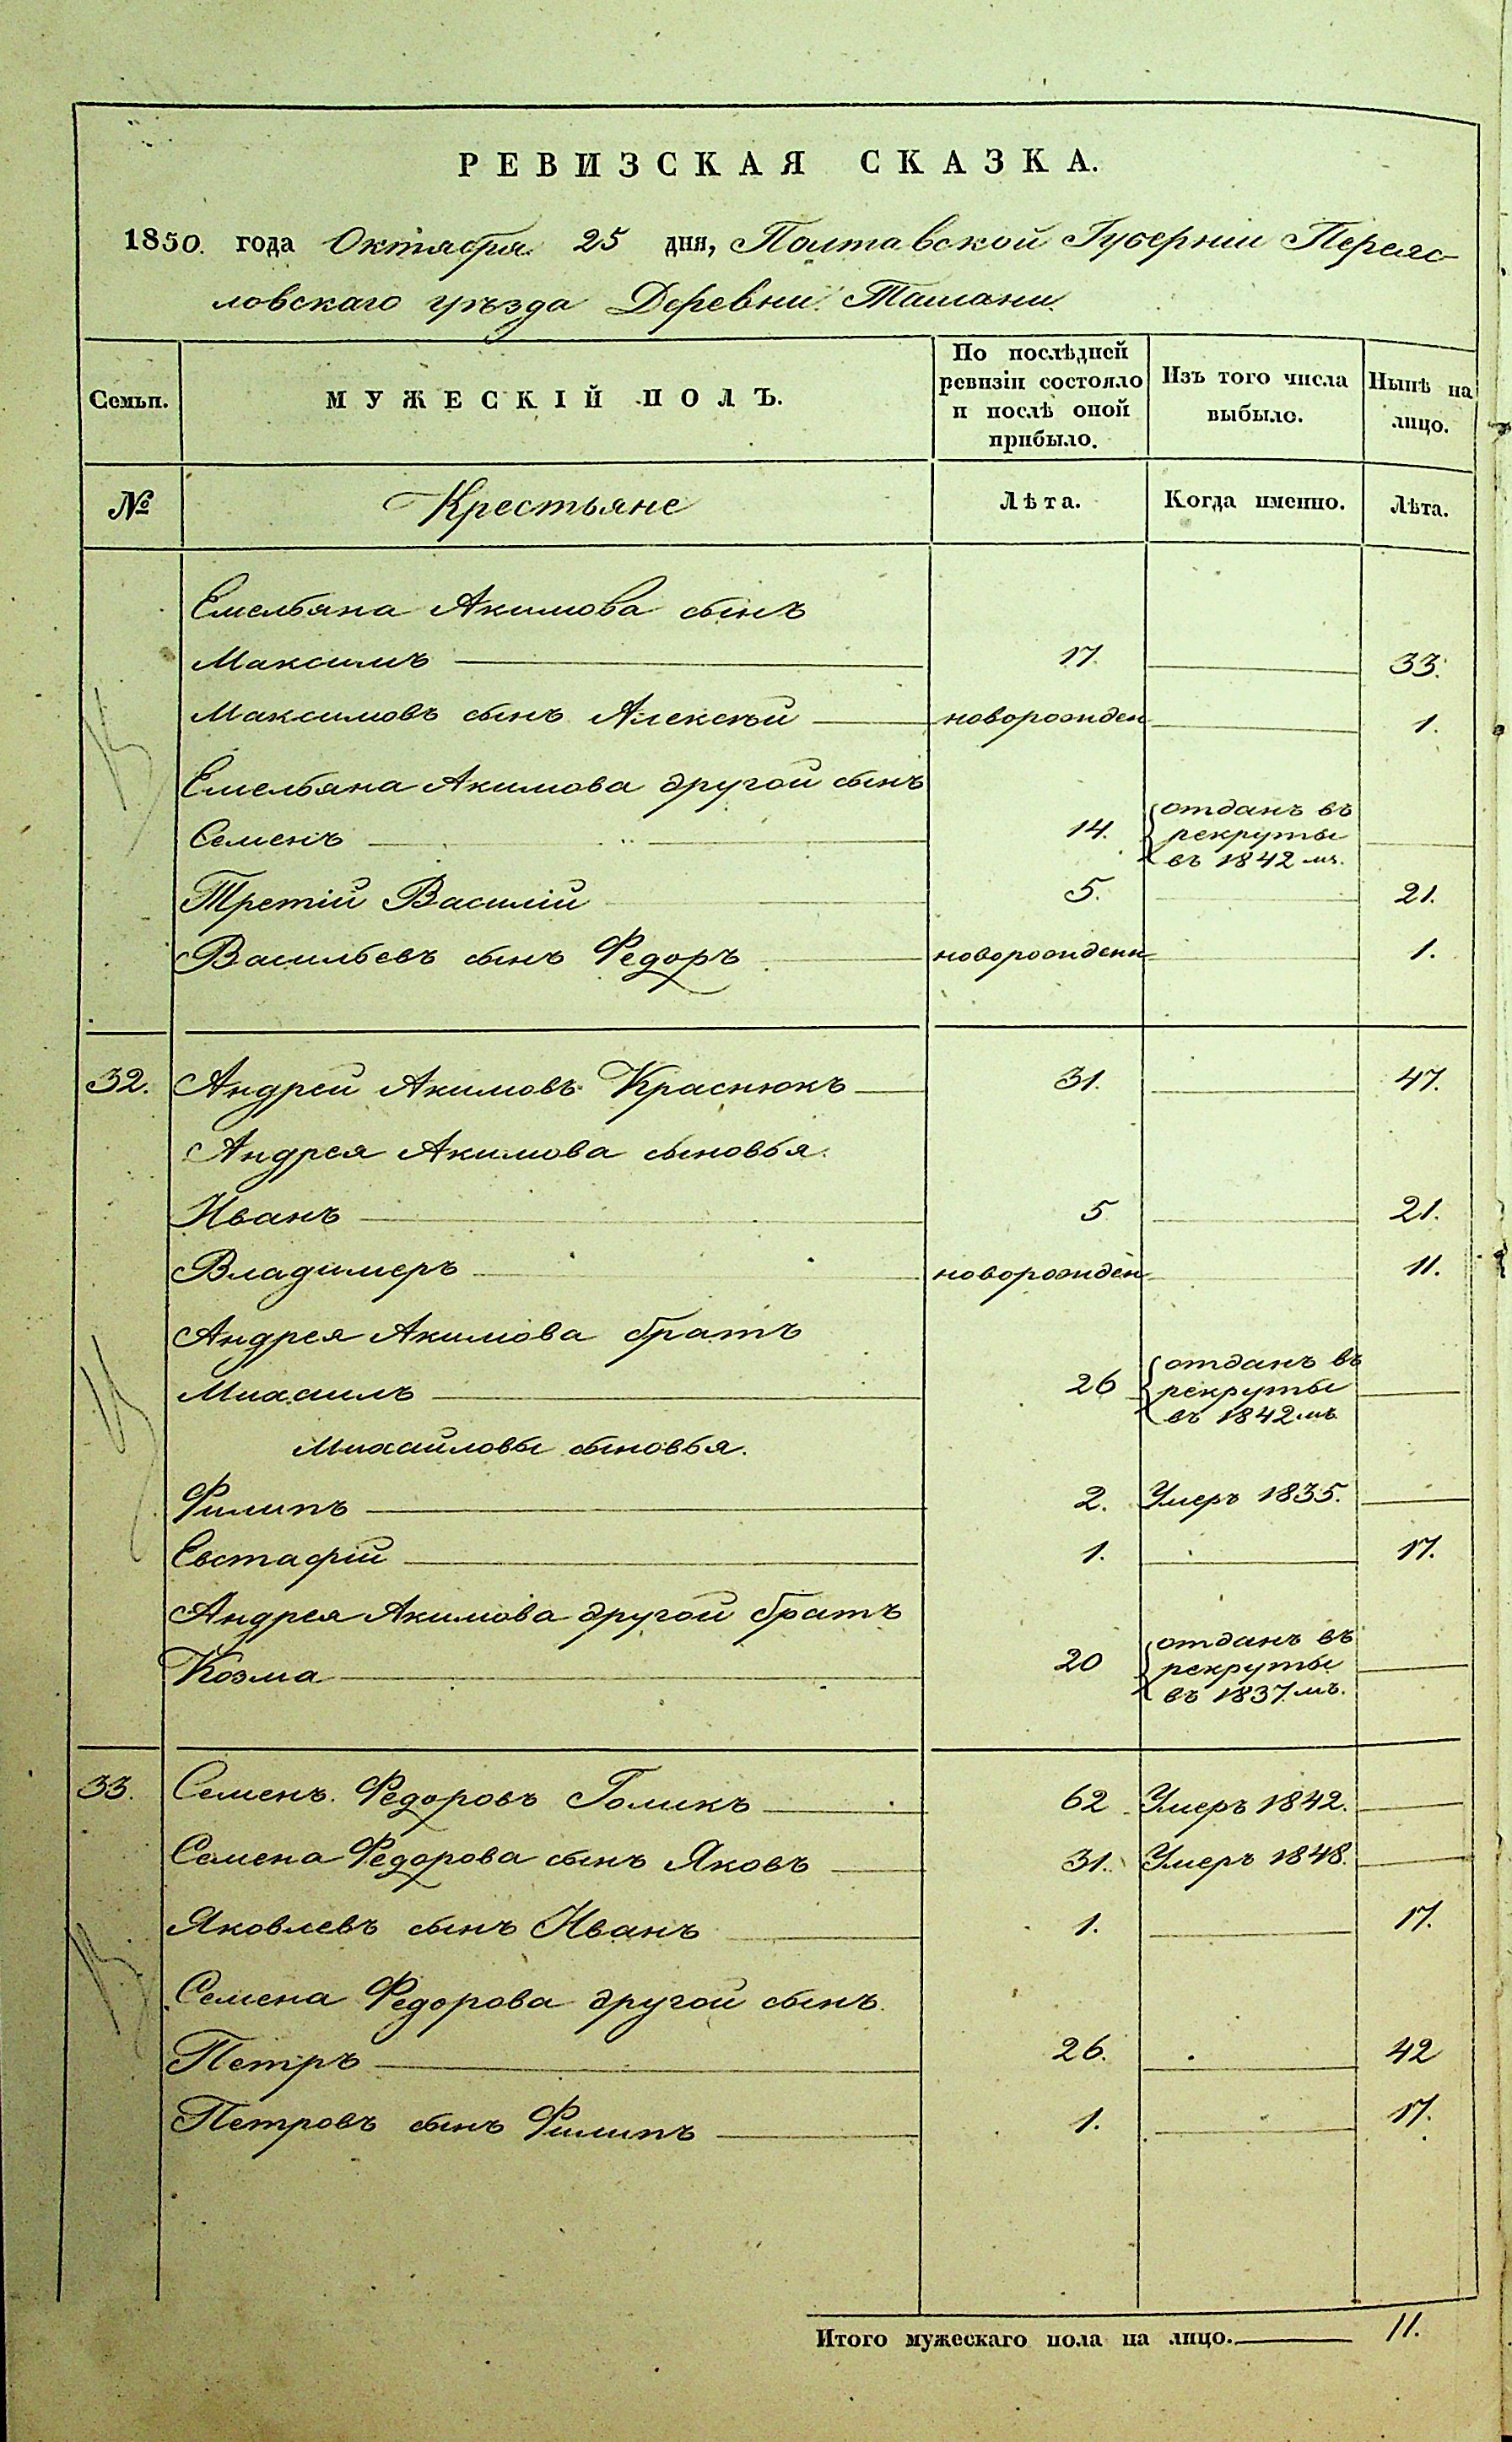 РЕВИЗСКАЯ СКАЗКА.
1850. года Октября 25 дня, Полтавской Губерніи Переяс-
ловскаго уѣзда Деревни Ташани.
Семьи. МУЖЕСКІЙ ПОЛЪ. По послѣдней ревизіи состояло и послѣ оной прибыло. Изъ того числа выбыло. Нынѣ на лицо.
№ Крестьяне Лѣта. Когда именно. Лѣта.
Емельяна Акимова сынъ
Максимъ 17. 33.
Максимовъ сынъ Алексѣй новорожден 1.
Емельяна Акимова другой сынъ
Семенъ 14. отданъ въ рекруты въ 1842 мъ.
Третій Василій 5. 21.
Васильевъ сынъ Федоръ новорожденн 1.
32. Андрей Акимовъ Краснюкъ 31. 47.
Андрея Акимова сыновья.
Иванъ 5 21.
Владимеръ новорожден 11.
Андрея Акимова братъ
Михаилъ 26 отданъ въ рекруты въ 1842 мъ
Михайловы сыновья.
Филипъ 2. Умеръ 1835.
Евстафій 1. 17.
Андрея Акимова другой братъ
Козма 20 отданъ въ рекруты въ 1837 мъ.
33. Семенъ Федоровъ Голикъ 62 Умеръ 1842.
Семена Федорова сынъ Яковъ 31. Умеръ 1848.
Яковлевъ сынъ Иванъ 1. 17.
Семена Федорова другой сынъ
Петръ 26. 42
Петровъ сынъ Филипъ 1. 17.
Итого мужескаго пола на лицо. 11.